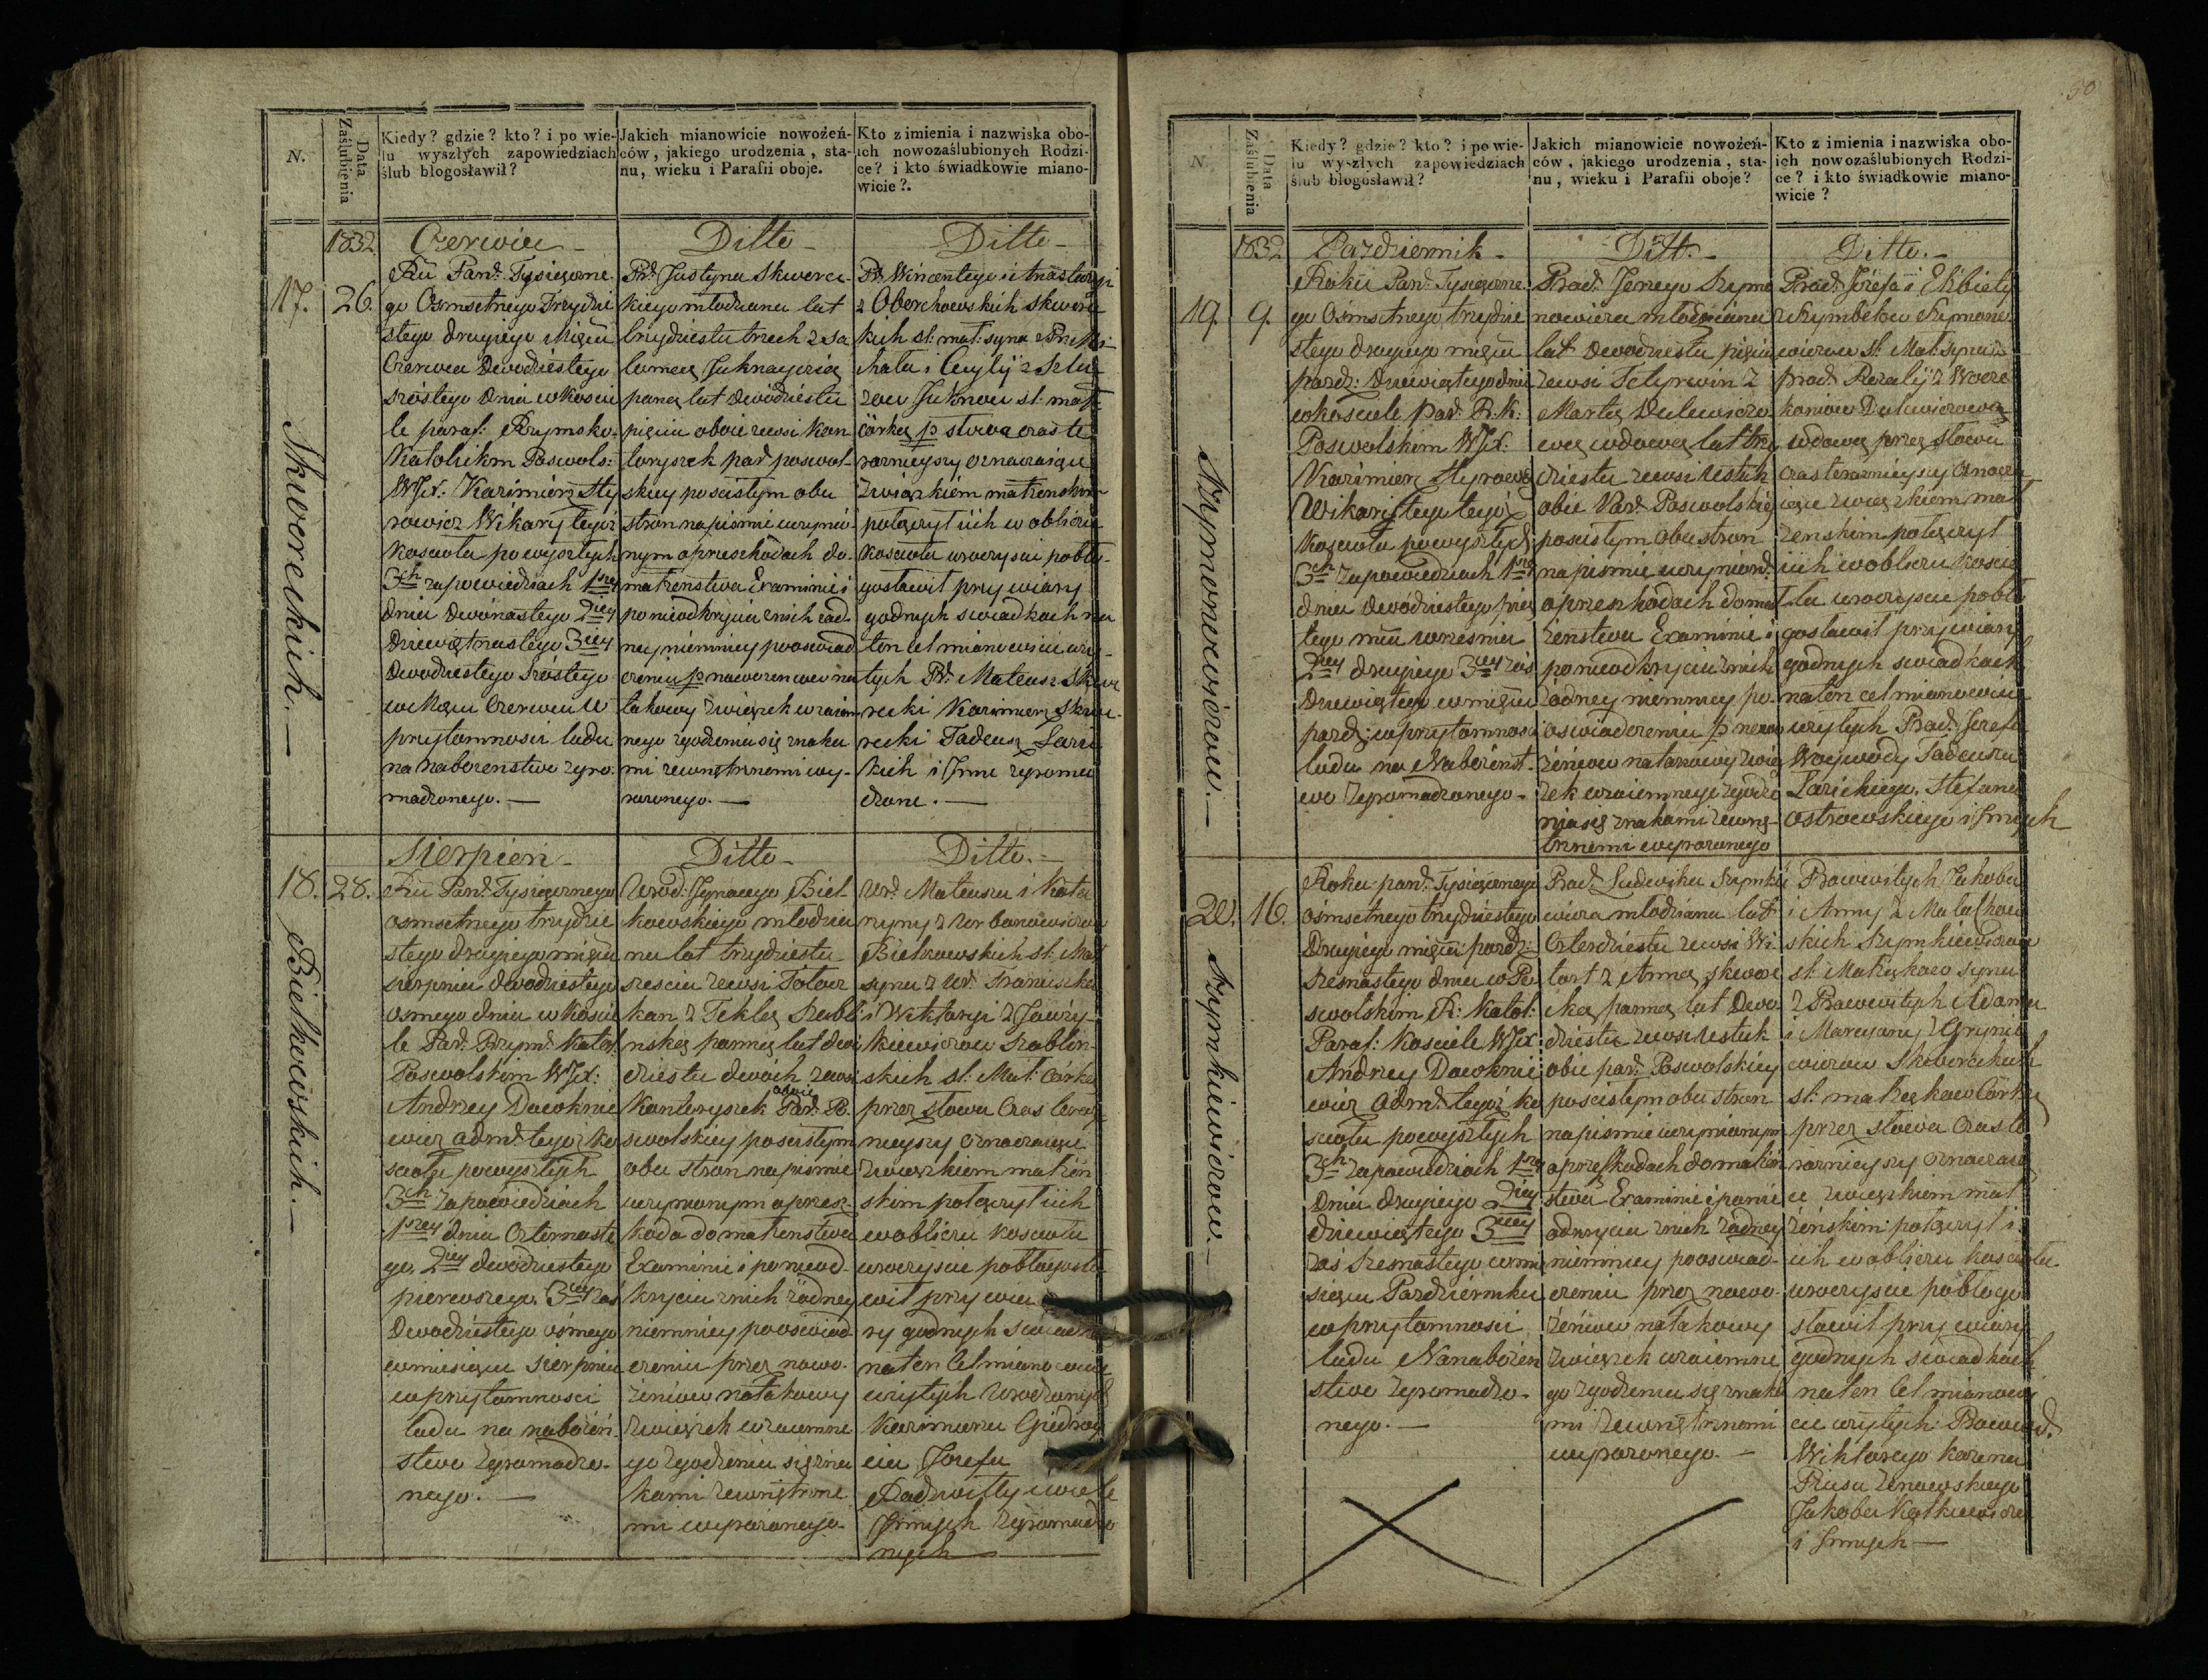 N.
Data
Zaślubienia
Kiedy? gdzie? kto? i po wie-
lu wyszłych zapowiedziach
ślub błogosławił?
Jakich mianowicie nowożeń-
ców, jakiego urodzenia, sta-
nu, wieku i Parafii oboje.
Kto z imienia i nazwiska obo-
ich nowozaślubionych Rodzi-
ce? i kto świadkowie miano-
wicie?.
1832
17.
26.
Skworeckich.—
Czerwiec
Roku Pand. Tysiączne-
go Osmsetnego Trzydzie
stego drugiego Miesca
Czerwca Dwodziestego
szóstego dnia w Koscie
le paraf: Rzymsko-
Katolickim Poswols:
WJX: Kazimierz Sty
rowicz Wikary tegóż
Koscioła po wyszłych
3ch zapowiedziach 1szey
dnia dwónastego 2giey
Dziewiętnastego 3ciey
Dwodziestego Szóstego
w Mcu Czerwcu w
przytomnosci ludu
na nabożenstwo zgro-
madzonego.—
Ditto-
Pr. Justyna Skworec-
kiego młodziana lat
trzydziestu trzech z Sa
lomeą Juknayczią
paną lat dwódziestu
pięciu oboie zewsi Kan
toryszek par. poswol-
skiey po scisłym obu
stron na pismie uczynio-
nym o przeszkodach do
małżeństwa Examinie i
po nieodkryciu znich żad-
ney niemniey po oswiad
czeniu p. nowożencow na
takowy związek wzaiem-
nego zgodzenia się znaka
mi zewnętrznemi wy-
rażonego.—
Ditto-
Pr. Wincentego i Anastazyi
z Oborchowskich Skwore
kich sł: mał: syna z Pr. Mi
chała i Cecylij z Szlu
zow Juknow sł: mał:
córką p. słowa czas te
raznieyszy oznaczaiące
Związkiem małżenskim
połączył iich w obliczu
Kosciola uroczyscie pobło-
gosławił przy wiary
godnych swiadkach na
ten cel mianowicie uży-
tych Pr. Mateusz Skwo
recki Kazimierz Skwo-
recki Tadeusz Łari
ckich i Inni zgroma
dzone.—
18.
28.
Bielkowskich.—
Sierpien-
Roku Pand. Tysiącznego
osmsetnego trzydzie
stego drugiego miesca
sierpnia dwodziestego
osmego dnia w Koscie
le Par. Rzym. Katol.
Poswolskim WJX:
Andrzey Dowknie
wicz Adm. tegóż Ko
scioła po wyszłych
3ch zapowiedziach
1szey dnia Czternaste
go, 2giey dwódziestego
pierwszego, 3ciey zaś
Dwodziestego ósmego
w miesiącu Sierpniu
w przytomnosci
ludu na nabożeń
stwo zgromadzo-
nego.—
Ditto-
Urod: Ignacego Biel
kowskiego młodzia
na lat trzydziestu
szesciu zewsi Totor
kan z Teklą Szabli
nską panną lat dwu
dziestu dwóch zewsi
oboie
Kantoryszek Par. Po
swolskiey po scisłym
obu stron na pismie
uczynionym o przesz-
koda do małżenstwa
Examinie i po nieod-
kryciu znich żadney
niemniey po oswiad-
czeniu przez nowo-
żeńcow na takowy
Związek wzaiemne
go zgodzenia się zna
kami zewnętrzne
mi wyrażonego.
Ditto.-
Ur. Mateusza i Kata
rzyny z Urbanowiczow
Bielkowskich sł: Mał:
syna z Ur. Franciszka
i Wiktoryi z Jawży-
kiewiczow Szablin-
skich sł: Mał: córką
przez słowa Czas teraz
nieyszy oznaczaiące
Związkiem małżeń
skim połączył iich
w obliczu Kosciola
uroczyscie pobłogosła
wił przy wia
ry godnych swiadkach
na ten Cel mianowicie
użytych Urodzonych
Kazimierza Giedroy
cia Jozefa
Radwiłły i wiele
Innych zgromadzo
nych
50
N
Data
Zaślubienia
Kiedy? gdzie? kto? i po wie-
lu wyszłych zapowiedziach
ślub błogosławił?
Jakich mianowicie nowożeń-
ców, jakiego urodzenia, sta-
nu, wieku i Parafii oboje?
Kto z imienia i nazwiska obo-
ich nowozaślubionych Rodzi-
ce? i kto świadkowie miano-
wicie?
1832
19.
9.
Szymonowiczow.—
Pazdziernik-
Roku Pand. Tysiączne
go Osmsetnego trzydzie
stego drugiego miesca
pazdz: dziewiątego dnia
w kosciele par. R. K:
Poswolskim WJX:
Kazimierz Styrowicz
Wikary tegóż
Kosciola po wyszłych
3ch zapowiedziach 1szey
dnia dwódziestego pią
tego mca wrzesnia
2giey drugiego 3ciey zas
Dziewiątego w miescu
pazdz: w przytomnosci
ludu na Nabożeńst-
wo zgromadzonego-
Ditt.-
Prad. Jerzego Szymo
nowicza młodziana
lat dwodziestu pięciu
zewsi Tetyrwin z
Martą Dulewiczo-
wą wdową lat trzy
dziestu zewsi Ustuk
obie Par. Poswolskiey
po scisłym obu stron
na pismie uczynion.
o przeszkodach do mał
żenstwa Examinie i
po nieodkryciu znich
żadney niemniey po-
oswiadczeniu p. nowo
żeńcow na takowy zwią
zek wzaiemnego zgodze
nia się znakami zewnę-
trznemi wyrażonego
Ditto.-
Prad. Józefa i Elżbiety
z Szymbelow Szymono
wiczow sł: Mał: syna z
prad. Rozalij z Woro
koniow Dulewiczową
wdową przez słowa
czas teraznieyszy oznacza
iące związkiem mał
żenskim połączył
iich w obliczu koscio
ła uroczyscie pobło
gosławił przy wiary
godnych swiadkach
na ten cel mianowicie
użytych Prad. Jozefa
Woywody Tadeusza
Łarickiego, Stefana
Ostrowskiego i Innych
20.
16.
Szymkiewiczow—
Roku pand. Tysiącznego
ósmsetnego trzydziestego
Drugiego miesca pazdz:
szesnastego dnia w Po
swolskim R: Katol:
Paraf: Kosciele WJX
Andrzey Dowknie
wicz Adm. tegóż ko
scioła po wyszłych
3ch zapowiedziach 1szey
Dnia drugiego 2giey
dziewiątego 3ciey
zaś szesnastego w mie
siącu Pazdzierniku
w przytomnosci
ludu Na nabożen
stwo zgromadzo-
nego.—
Prad. Ludwika Szymkie
wicza młodziana lat
Czterdziestu zewsi Wi-
tart z Anną Skwore
cką panną lat dwo
dziestu zewsi Ustuk
obie par. Poswolskiey
po scisłym obu stron
na pismie uczynionym
o przeszkodach do małżeń
stwa Examinie i po nie
odkryciu znich żadney
niemniey po oswiad-
czeniu przez nowo-
żeńcow na takowy
Związek wzaiemne
go zgodzenia się znaka
mi zewnętrznemi
wyrażonego.—
Prawowitych Jakoba
i Anny z Małachow
skich Szymkiewiczow
sł: Małżąkow syna
z Prawowitych Adama
i Maryanny z Gryniu
wiczow Skworeckich
sł: małżąkow Córką
przez słowa Czas te
raznieyszy oznaczaią
ce związkiem mał
żeńskim połączył i
ich w obliczu kosciola
uroczyscie pobłogo
sławił przy wiary
godnych swiadkach
na ten Cel mianowi
cie użytych: Prawowd.
Wiktorego
Jakoba Kotkiewicza
i Innych—